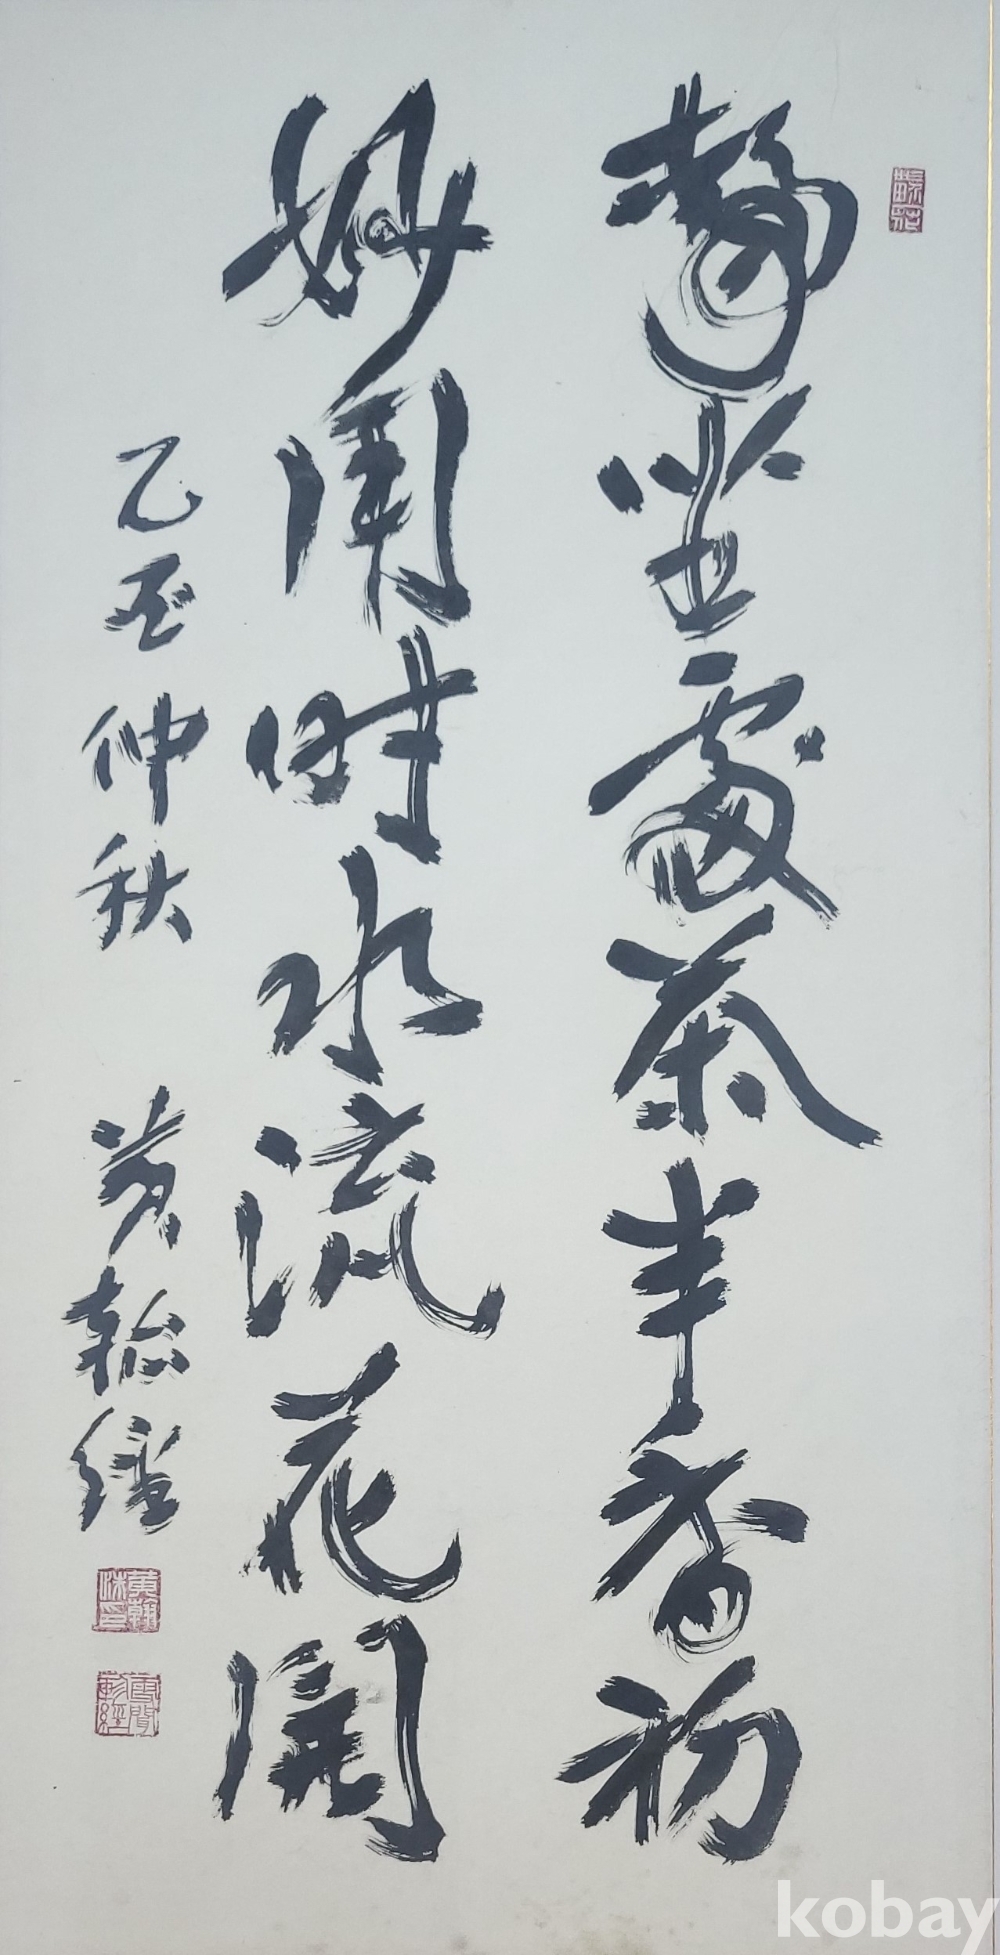 靜坐處茶半香初
妙用時水流花開
乙酉仲秋 黃
kobay